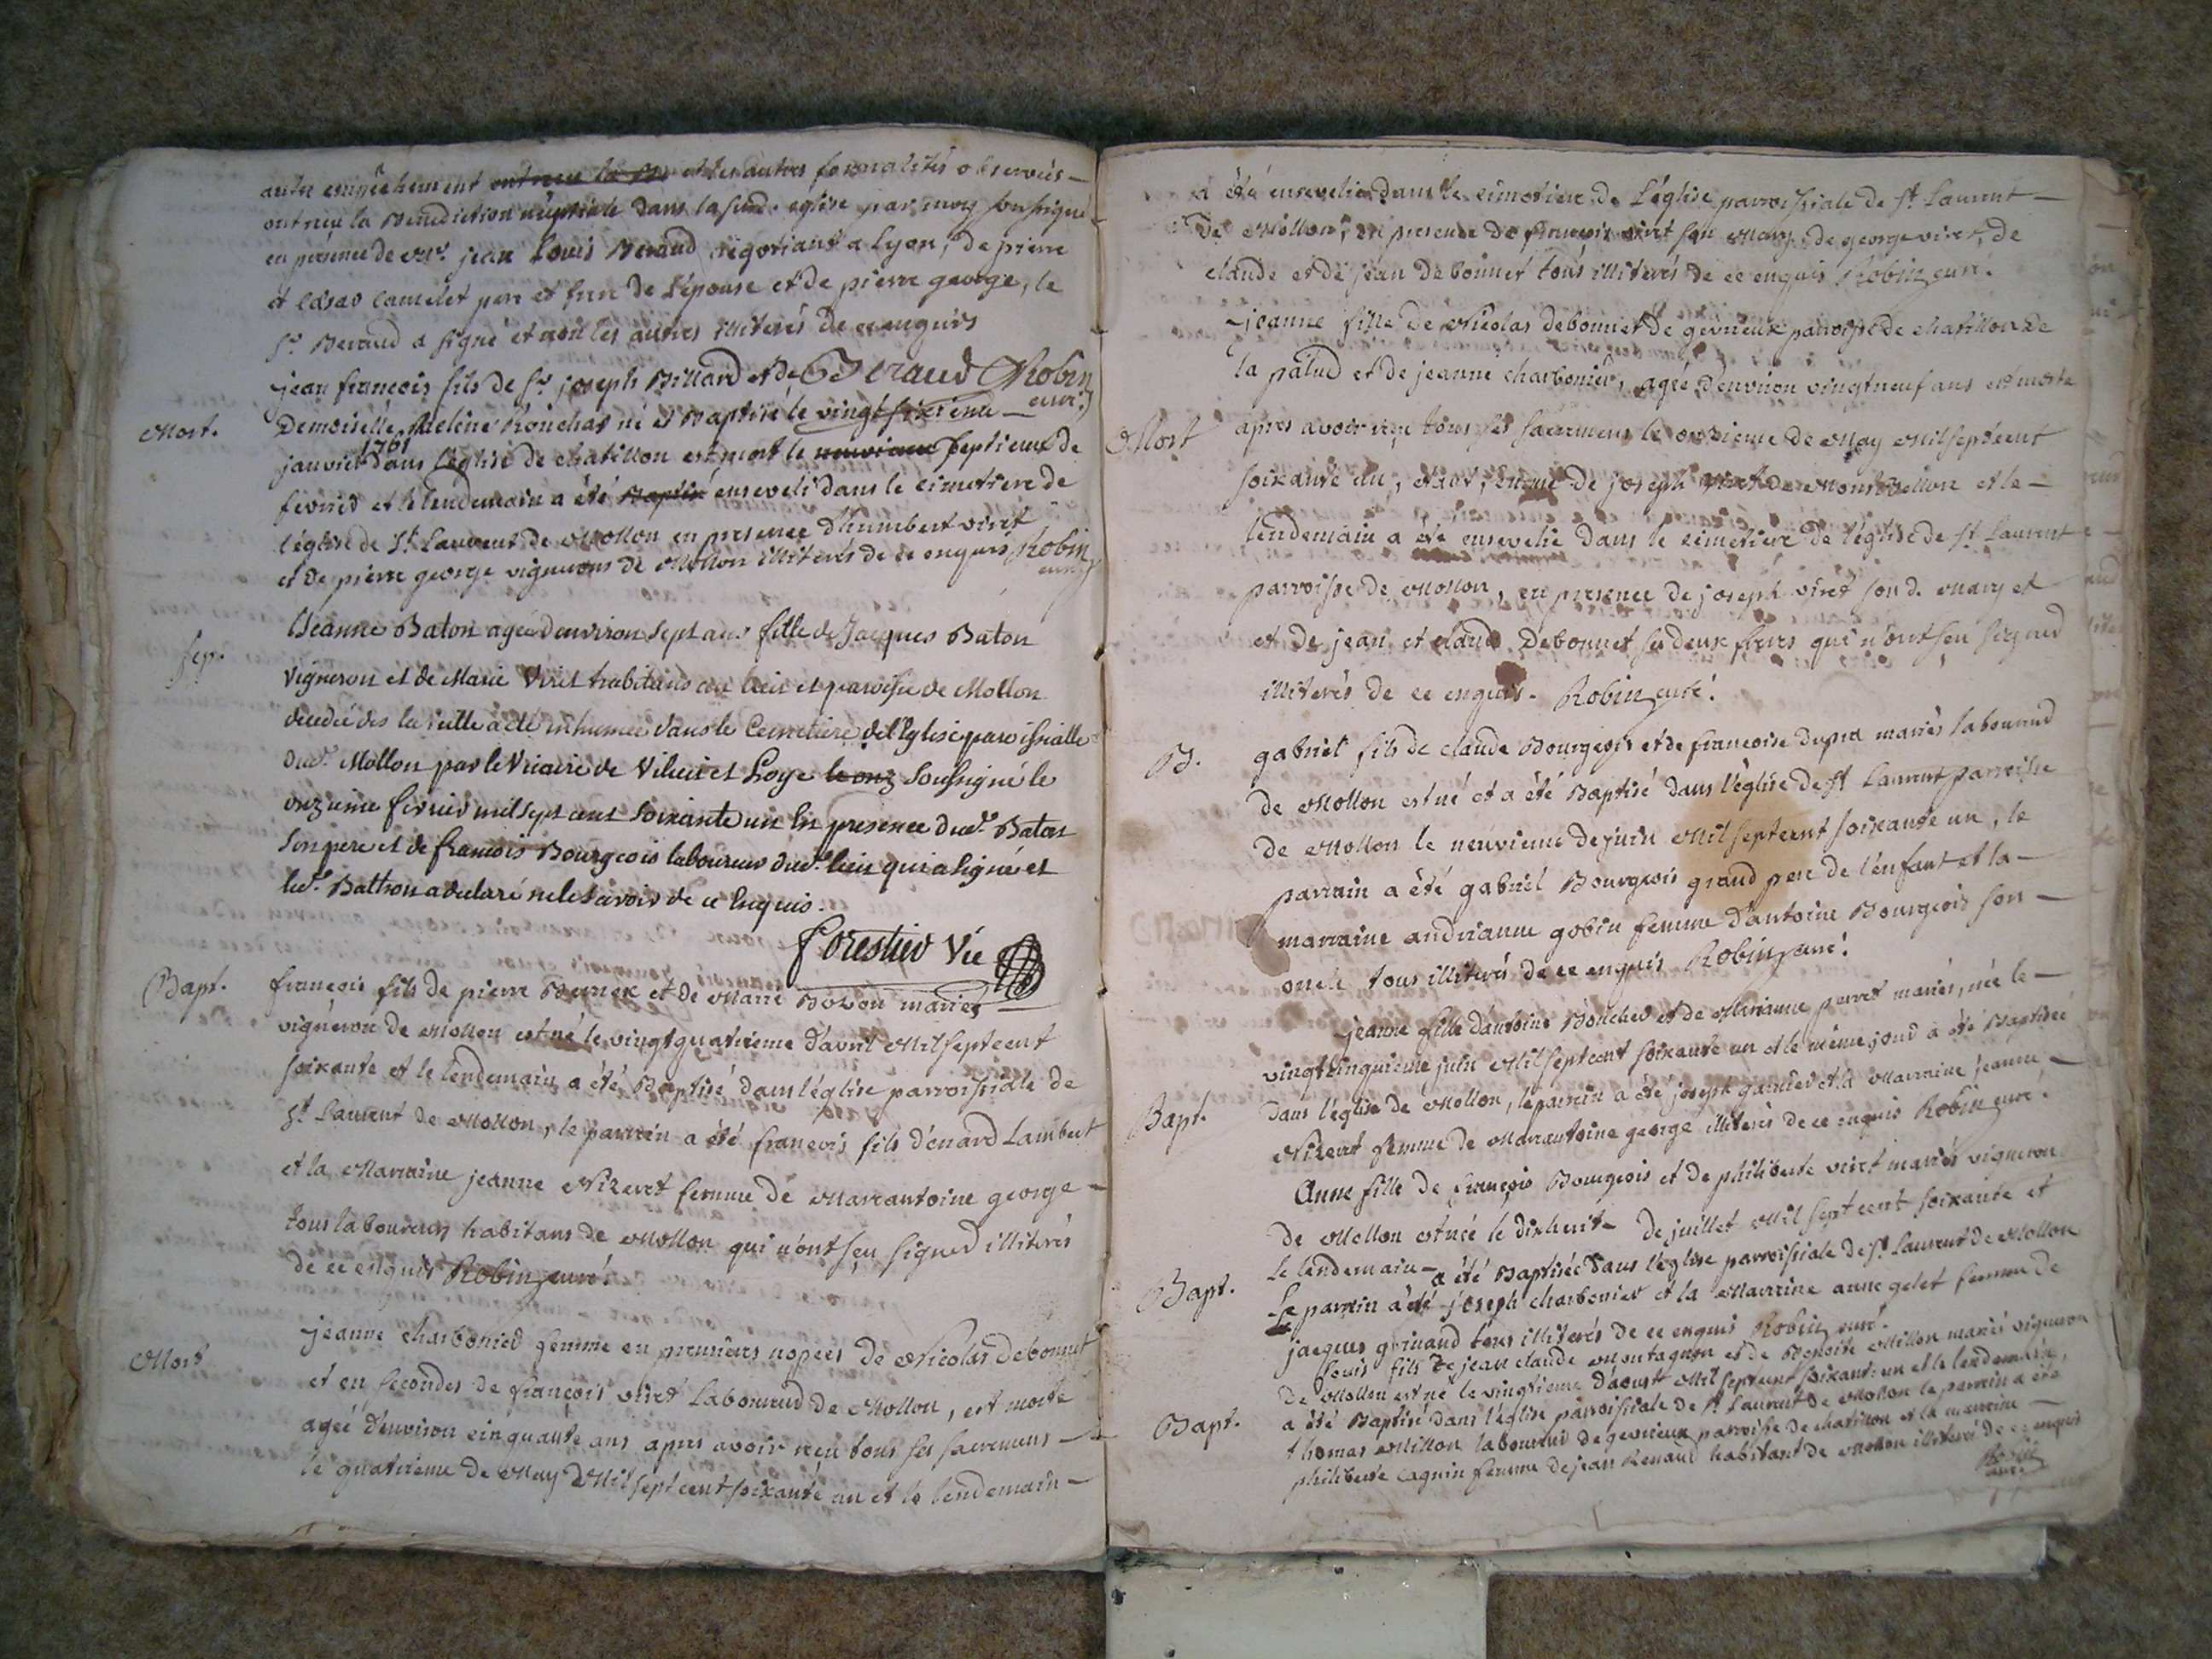 autre empêchement ont reçu la Be et les autres formalités observées —
ont reçu la Benediction nuptiale dans la susd. eglise par moy soussigné —
en présence de Mr. jean Louis Beraud négotiant a Lyon, de pierre
et Cesar camelet pere et frere de l'épouse et de pierre george, le
Sr. Beraud a signé et non les autres illiterés de ce enquis
Beraud Robin
curé
Mort.
jean francois fils de Sr. joseph Billard et de
Demoiselle Rouchas né et Baptisé le vingt sixieme —
janvier 1761 dans l'église de chatillon est mort le neuvieme septieme de
fevrier et le lendemain a été Baptisé enseveli dans le cimetiere de
l'église de St. Laurent de Mollon en presence d'humbert viret
et de pierre george vignerons de Mollon illiterés de ce enquis Robin
curé
Sep.
Jeanne Baton agée d'environ sept ans fille de Jacques Baton
Vigneron et de Marie Viret habitans au lieu et paroisse de Mollon
decedée des la veille a été inhumée dans le Cemetiere de l'Eglise paroissialle
dud. Mollon par le Vicaire de Vilieu et Loye le onz soussigné le
onzieme fevrier mil sept cent soixante un En presence dud. Baton
son pere et de francois Bourgeois laboureur dud. lieu qui a signé et
led. Bathon a declaré ne le scavoir de ce Enquis.
Forestier Vic
Bapt.
francois fils de pierre Bernex et de Marie Bozon mariés —
vigneron de Mollon est né le vingt quatrieme d'avril Mil sept cent
soixante et le lendemain a été Baptisé dans l'église parroissiale de
St. Laurent de Mollon, le parrain a été francois fils d'enard Lambert
et la Marraine jeanne Nizeret femme de Marcantoine george —
tous laboureurs habitans de Mollon qui n'ont sçu signer illiterés
de ce enquis Robin curé.
Mort
jeanne charbonier femme en premieres nopces de Nicolas debonnet
et en secondes de françois viret Laboureur de Mollon, est morte
agée d'environ cinquante ans apres avoir reçu tous ses sacremens —
le quatrieme de May Mil sept cent soixante un et le lendemain —
a été ensevelie dans le cimetiere de l'église parroissiale de St. Laurent —
de Mollon, en presence de francois viret son Mary, de george viret, de
claude et de jean debonnet tous illiterés de ce enquis Robin curé.
Mort
jeanne fille de Nicolas debonnet de gevrieux parroisse de chatillon de
la palud et de jeanne charbonier, agée d'environ vingt neuf ans est morte
apres avoir reçu tous ses sacremens le onzieme de May Mil sept cent
soixante un, étant femme de joseph viret de Mollon et le —
lendemain a été ensevelie dans le cimetiere de l'église de St. Laurent
parroisse de Mollon, en presence de joseph viret son d. Mary et
et de jean et claude Debonnet ses deux freres qui n'ont sçu signer
illiterés de ce enquis. Robin curé.
B.
gabriel fils de claude Bourgeois et de francoise dupra mariés laboureur
de Mollon est né et a été Baptisé dans l'église de St Laurent parroisse
de Mollon le neuvieme de juin Mil sept cent soixante un, le
parrain a été gabriel Bourgeois grand pere de l'enfant et la —
marraine andrianne gobin femme d'antoine Bourgeois son —
oncle tous illiterés de ce enquis Robin curé.
Bapt.
jeanne fille d'antoine Boucher et de Marianne perret mariés, née le —
vingt cinquieme juin Mil sept cent soixante un et le même jour a été Baptisée
dans l'église de Mollon, le parrain a été joseph garnier et la Marraine jeanne —
Nizeret femme de Marcantoine george illiterés de ce enquis Robin curé.
Bapt.
Anne fille de françois Bourgeois et de philiberte viret mariés vigneron
de Mollon est née le dixhuit — de juillet Mil sept cent soixante et
Le lendemain — a été Baptisée dans l'église parroissiale de St. Laurent de Mollon
Le parrain a été joseph charbonier et la Marraine anne gelet femme de
jacques grinand tous illiterés de ce enquis Robin curé.
Bapt.
Louis fils de jean claude Montagnon et de Benoite Millon mariés vigneron
de Mollon est né le vingtieme d'aoust Mil sept cent soixante un et le lendemain,
a été Baptisé dans l'église parroissiale de St Laurent de Mollon le parrain a été
thomas Millon laboureur de gevrieux parroisse de chatillon et la marraine —
philiberte cagnin femme de jean Renaud habitant de Mollon illiterés de ce enquis
Robin
curé